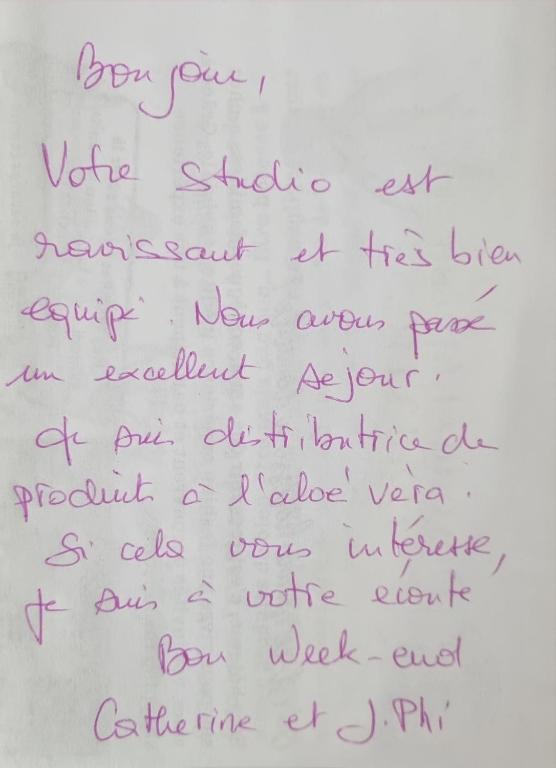 Bonjour,
Votre studio est
ravissant et très bien
equipé. Nous avons passé
un excellent séjour.
Je suis distributrice de
produits à l'aloé véra.
Si cela vous intéresse,
je suis à votre écoute
Bon Week-end
Catherine et J.Phi